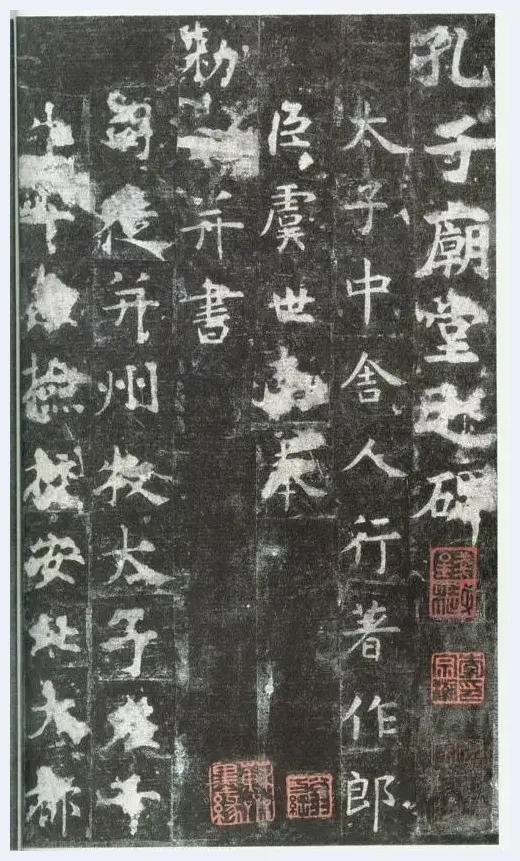 孔子廟堂之碑
太子中舍人行著作郎
臣虞世南奉
勑并書
司徒并州牧太子左千
牛率兼檢校安北大都